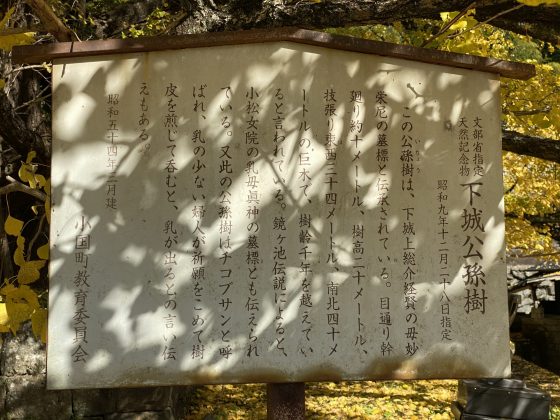 文部省指定
天然記念物
下城公孫樹
昭和九年十二月二十八日指定
この公孫樹は、下城上総介経賢の母妙
いちょう
栄尼の墓標と伝承されている。目通り幹
廻り約十メートル、樹高二十メートル、
技張り東西三十四メートル、南北四十メ
ートルの巨木で、樹齢千年を越えてい
ると言われている。鏡ヶ池伝説によると、
小松女院の乳母眞神の墓標とも伝えられ
ている。又此の公孫樹はチコブサンと呼
ばれ、乳の少ない婦人が祈願をこめて樹
皮を煎じて呑むと、乳が出るとの言い伝
えもある。
昭和五十四年三月建
小国町教育委員会